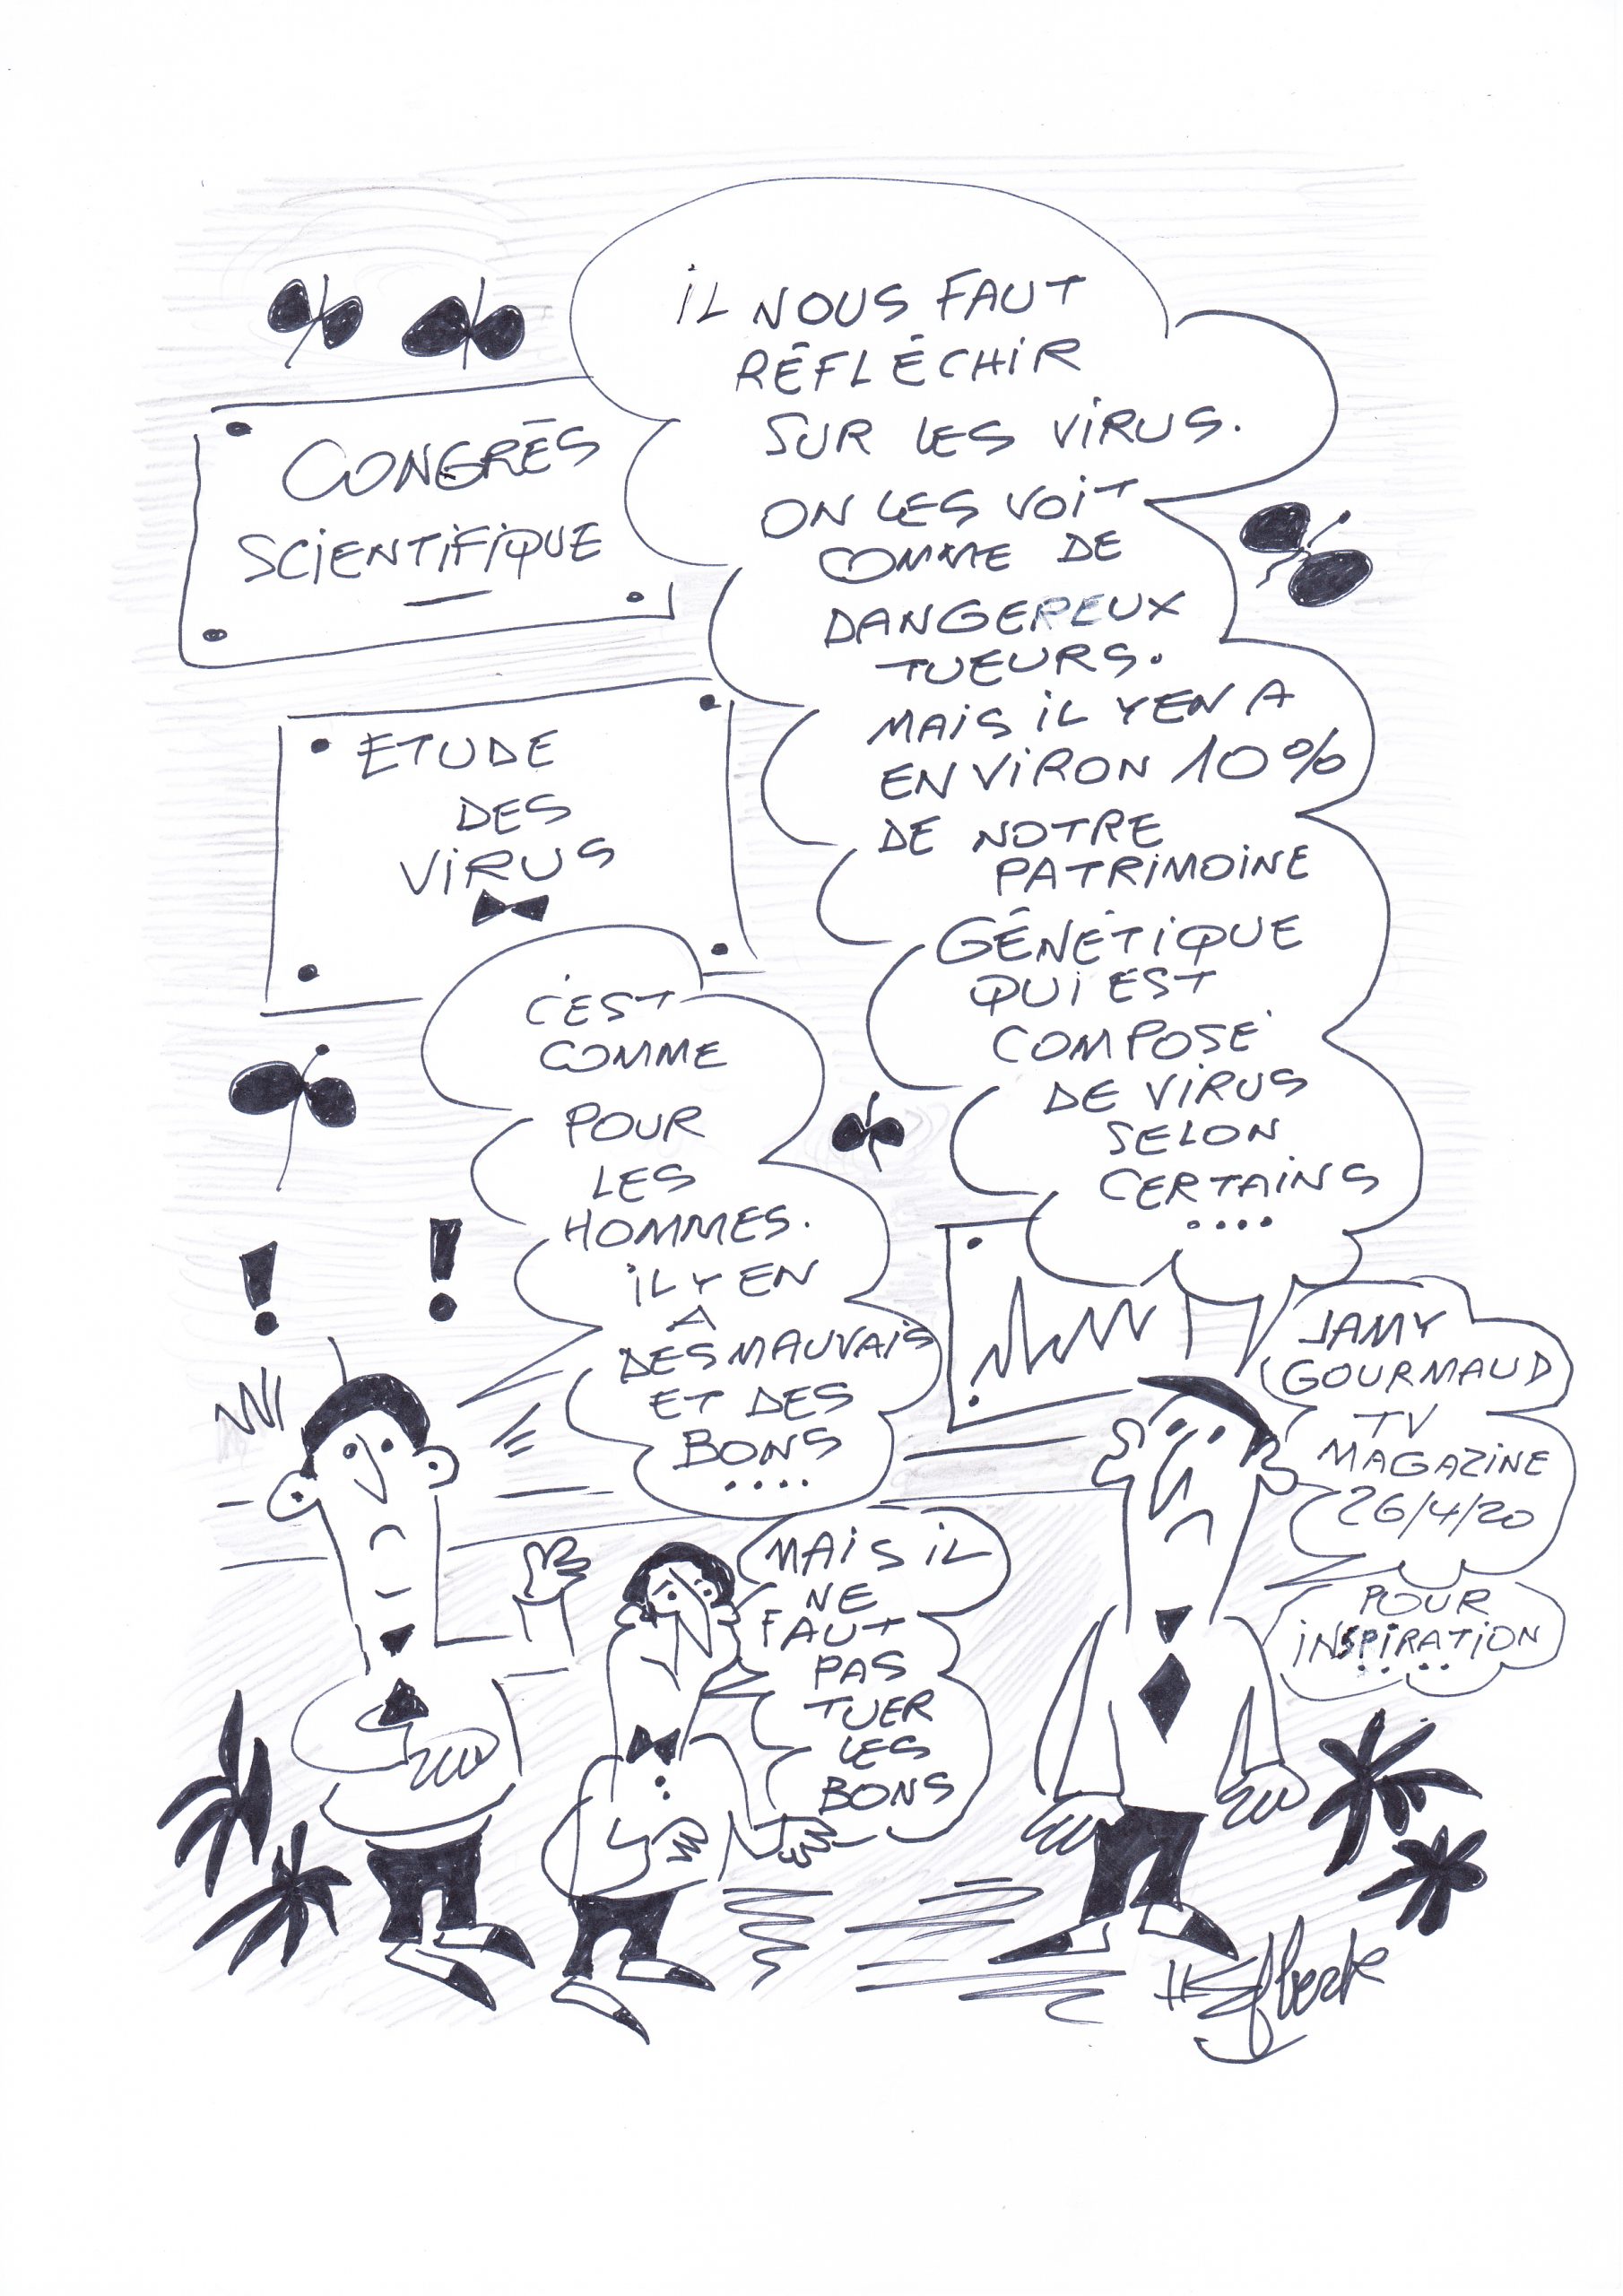 CONGRÈS
SCIENTIFIQUE
ETUDE
DES
VIRUS
IL NOUS FAUT
RÉFLÉCHIR
SUR LES VIRUS.
ON LES VOIT
COMME DE
DANGEREUX
TUEURS.
MAIS IL Y EN A
ENVIRON 10%
DE NOTRE
PATRIMOINE
GÉNÉTIQUE
QUI EST
COMPOSÉ
DE VIRUS
SELON
CERTAINS
....
C'EST
COMME
POUR
LES
HOMMES.
IL Y EN
A
DES MAUVAIS
ET DES
BONS
....
MAIS IL
NE
FAUT
PAS
TUER
LES
BONS
JAMY
GOURMAUD
TV
MAGAZINE
26/4/20
POUR
INSPIRATION
....